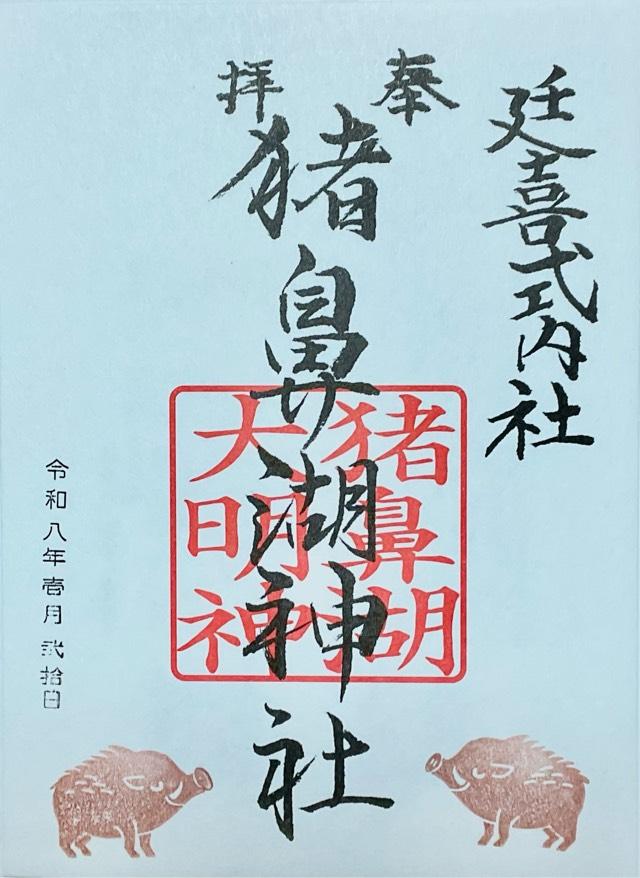 延喜式内社
奉拝
猪鼻湖神社
猪鼻湖
大明神
令和八年壱月弐拾日